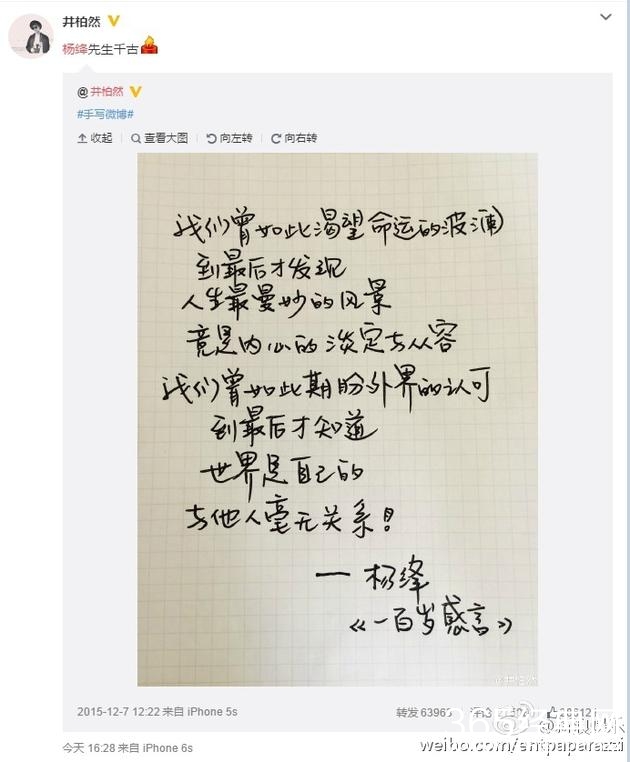 井柏然
杨绛先生千古
@井柏然
#手写微博#
收起 查看大图 向左转 向右转
我们曾如此渴望命运的波澜
到最后才发现
人生最曼妙的风景
竟是内心的淡定与从容
我们曾如此期盼外界的认可
到最后才知道
世界是自己的
与他人毫无关系!
— 杨绛
《一百岁感言》
@井柏然
2015-12-7 12:22 来自 iPhone 5s 转发 6396
今天 16:28 来自 iPhone 6s
weibo.com/entpaparazzi